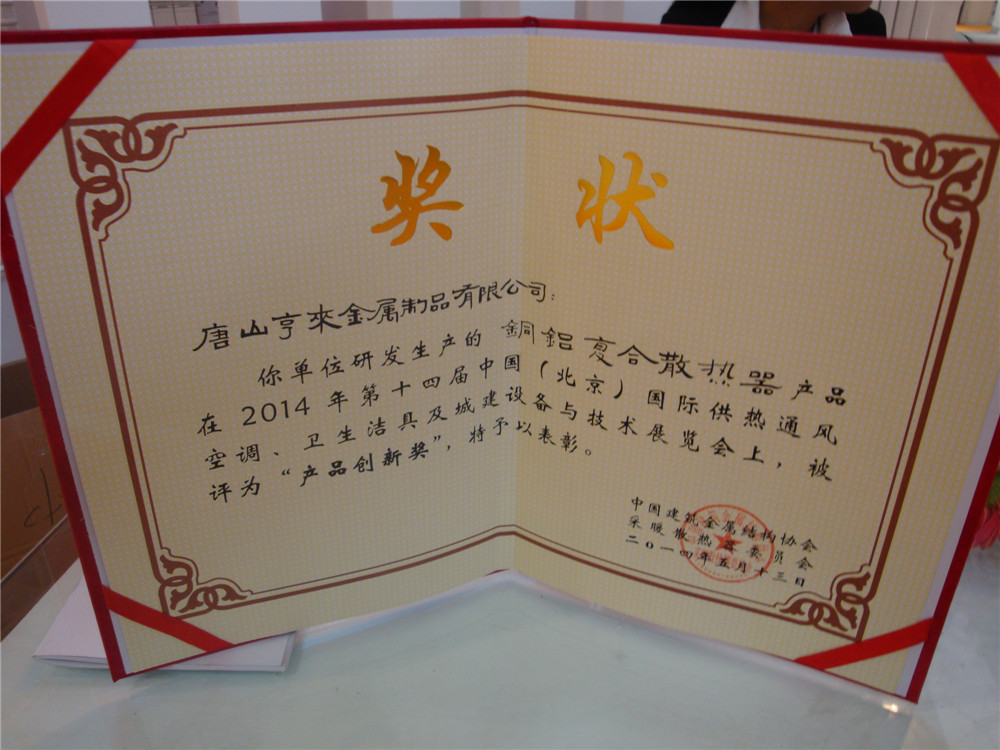 奖状
唐山亨來金属制品有限公司：
你单位研发生产的 銅鋁复合散热器 产品
在 2014 年第十四届中国（北京）国际供热通风
空调、卫生洁具及城建设备与技术展览会上，被
评为“产品创新奖”，特予以表彰。
中国建筑金属结构协会
采暖散热器委员会
二〇一四年五月十三日